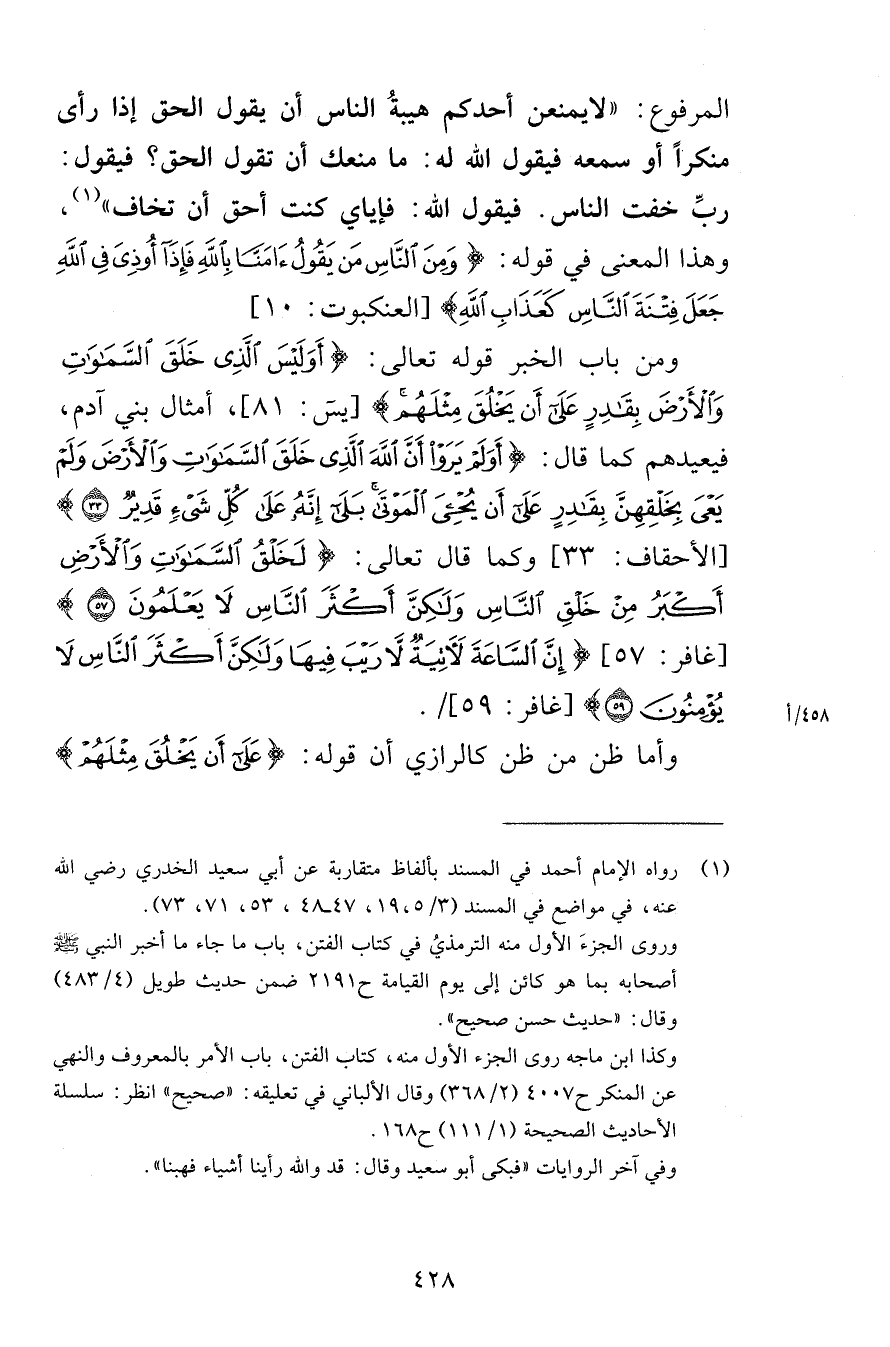 المرفوع: «لايمنعن أحدكم هيبةُ الناس أن يقول الحق إذا رأى
منكراً أو سمعه فيقول الله له: ما منعك أن تقول الحق؟ فيقول:
ربِّ خفت الناس. فيقول الله: فإياي كنت أحق أن تخاف»(١)،
وهذا المعنى في قوله: ﴿ وَمِنَ ٱلنَّاسِ مَن يَقُولُ ءَامَنَّا بِٱللَّهِ فَإِذَآ أُوذِىَ فِى ٱللَّهِ
جَعَلَ فِتْنَةَ ٱلنَّاسِ كَعَذَابِ ٱللَّهِ﴾ [العنكبوت: ١٠]
ومن باب الخبر قوله تعالى: ﴿ أَوَلَيْسَ ٱلَّذِى خَلَقَ ٱلسَّمَٰوَٰتِ
وَٱلْأَرْضَ بِقَٰدِرٍ عَلَىٰٓ أَن يَخْلُقَ مِثْلَهُمۚ ﴾ [يسَ: ٨١]، أمثال بني آدم،
فيعيدهم كما قال: ﴿ أَوَلَمْ يَرَوْا۟ أَنَّ ٱللَّهَ ٱلَّذِى خَلَقَ ٱلسَّمَٰوَٰتِ وَٱلْأَرْضَ وَلَمْ
يَعْىَ بِخَلْقِهِنَّ بِقَٰدِرٍ عَلَىٰٓ أَن يُحْۦِىَ ٱلْمَوْتَىٰۚ بَلَىٰٓ إِنَّهُۥ عَلَىٰ كُلِّ شَىْءٍ قَدِيرٌ ٣٣ ﴾
[الأحقاف: ٣٣] وكما قال تعالى: ﴿ لَخَلْقُ ٱلسَّمَٰوَٰتِ وَٱلْأَرْضِ
أَكْبَرُ مِنْ خَلْقِ ٱلنَّاسِ وَلَٰكِنَّ أَكْثَرَ ٱلنَّاسِ لَا يَعْلَمُونَ ٥٧ ﴾
[غافر: ٥٧] ﴿ إِنَّ ٱلسَّاعَةَ لَءَاتِيَةٌ لَّا رَيْبَ فِيهَا وَلَٰكِنَّ أَكْثَرَ ٱلنَّاسِ لَا
يُؤْمِنُونَ ٥٩﴾ [غافر: ٥٩]/ .
٤٥٨/أ
وأما ظن من ظن كالرازي أن قوله: ﴿عَلَىٰٓ أَن يَخْلُقَ مِثْلَهُمْ﴾
(١) رواه الإمام أحمد في المسند بألفاظ متقاربة عن أبي سعيد الخدري رضي الله
عنه، في مواضع في المسند (٣/ ٥، ١٩، ٤٧ـ٤٨ ، ٥٣، ٧١، ٧٣).
وروى الجزءَ الأول منه الترمذيُ في كتاب الفتن، باب ما جاء ما أخبر النبي ﷺ
أصحابه بما هو كائن إلى يوم القيامة ح٢١٩١ ضمن حديث طويل (٤/ ٤٨٣)
وقال: «حديث حسن صحيح».
وكذا ابن ماجه روى الجزء الأول منه، كتاب الفتن، باب الأمر بالمعروف والنهي
عن المنكر ح٤٠٠٧ (٢/ ٣٦٨) وقال الألباني في تعليقه: «صحيح» انظر: سلسلة
الأحاديث الصحيحة (١/ ١١١) ح١٦٨.
وفي آخر الروايات «فبكى أبو سعيد وقال: قد والله رأينا أشياء فهبنا».
٤٢٨